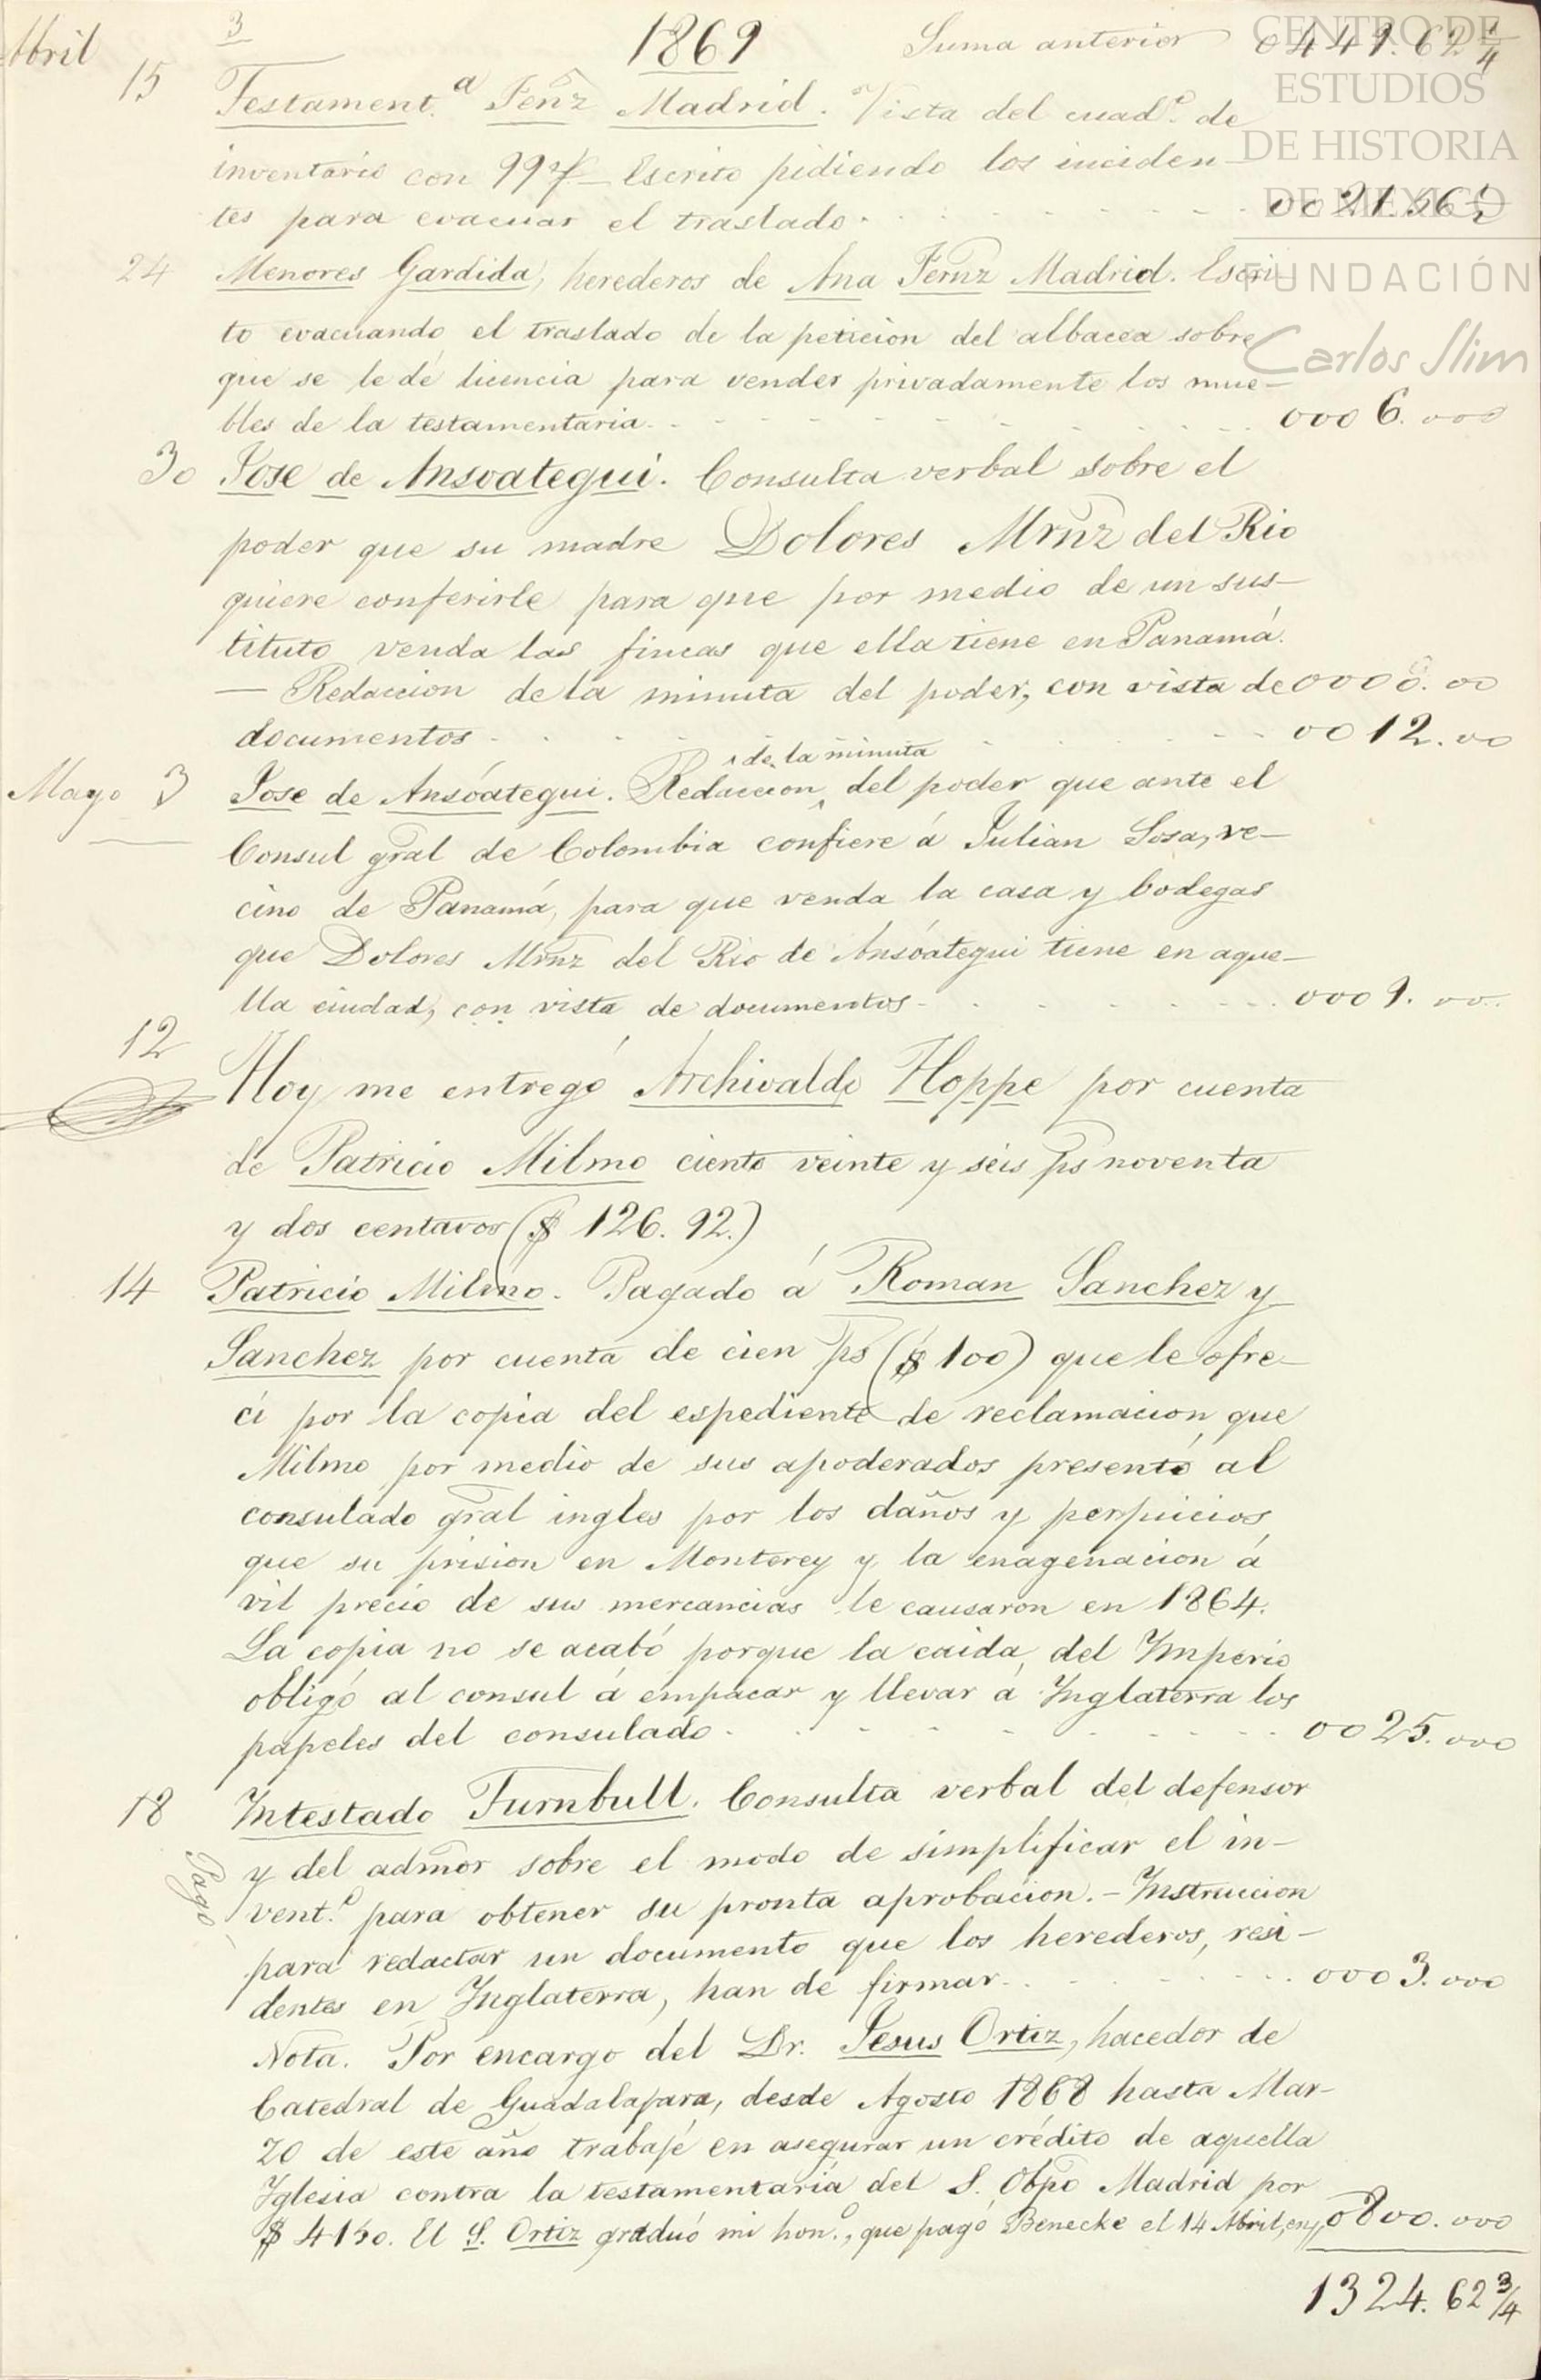 Abril 3 1869 Suma anterior 0449. 62 1/4
15 Testament.ª Fern̄z Madrid. Vista del cuad.º de
inventario con 99 f — Escrito pidiendo los inciden-
tes para evacuar el traslado. 0021. 56 1/2
24 Menores Gardida, herederos de Ana Fern̄z Madrid. Escri-
to evacuando el traslado de la peticion del albacea sobre
que se le dé licencia para vender privadamente los mue-
bles de la testamentaria. 0006. 000
30 Jose de Ansoategui. Consulta verbal sobre el
poder que su madre Dolores Mrn̄z del Rio
quiere conferirle para que por medio de un sus-
tituto venda las fincas que ella tiene en Panamá.
— Redaccion de la minuta del poder, con vista de 00 00
documentos 0012. 00
de la minuta
Mayo 3 Jose de Ansóategui. Redaccion ^ del poder que ante el
Consul gral de Colombia confiere á Julian Sosa, ve-
cino de Panamá, para que venda la casa y bodegas
que Dolores Mrn̄z del Rio de Ansóategui tiene en aque-
lla ciudad, con vista de documentos 0009. 00
12 Hoy me entregó Archivaldo Hoppe por cuenta
de Patricio Milmo ciento veinte y seis ps noventa
y dos centavos ($ 126. 92.)
14 Patricio Milmo. Pagado á Roman Sanchez y
Sanchez por cuenta de cien ps ($ 100) que le ofre-
cí por la copia del espediente de reclamacion, que
Milmo por medio de sus apoderados presentó al
consulado gral ingles por los daños y perjuicios
que su prision en Monterey y la enagenacion á
vil precio de sus mercancias le causaron en 1864.
La copia no se acabó porque la caida del Imperio
obligó al consul á empacar y llevar á Inglaterra los
papeles del consulado 0025. 000
18 Intestado Turnbull. Consulta verbal del defensor
y del admor sobre el modo de simplificar el in-
Pagó
vent.º para obtener su pronta aprobacion. — Instruccion
para redactar un documento que los herederos, resi-
dentes en Inglaterra, han de firmar 0003. 000
Nota. Por encargo del Dr. Jesus Ortiz, hacedor de
Catedral de Guadalajara, desde Agosto 1868 hasta Mar-
20 de este año trabajé en asegurar un crédito de aquella
Iglesia contra la testamentaria del S. Obpo Madrid por
$ 4150. El S. Ortiz graduó mi hon.º, que pagó Benecke el 14 Abril, en 0800. 000
1324. 62 3/4
CENTRO DE
ESTUDIOS
DE HISTORIA
DE MÉXICO
FUNDACIÓN
Carlos Slim